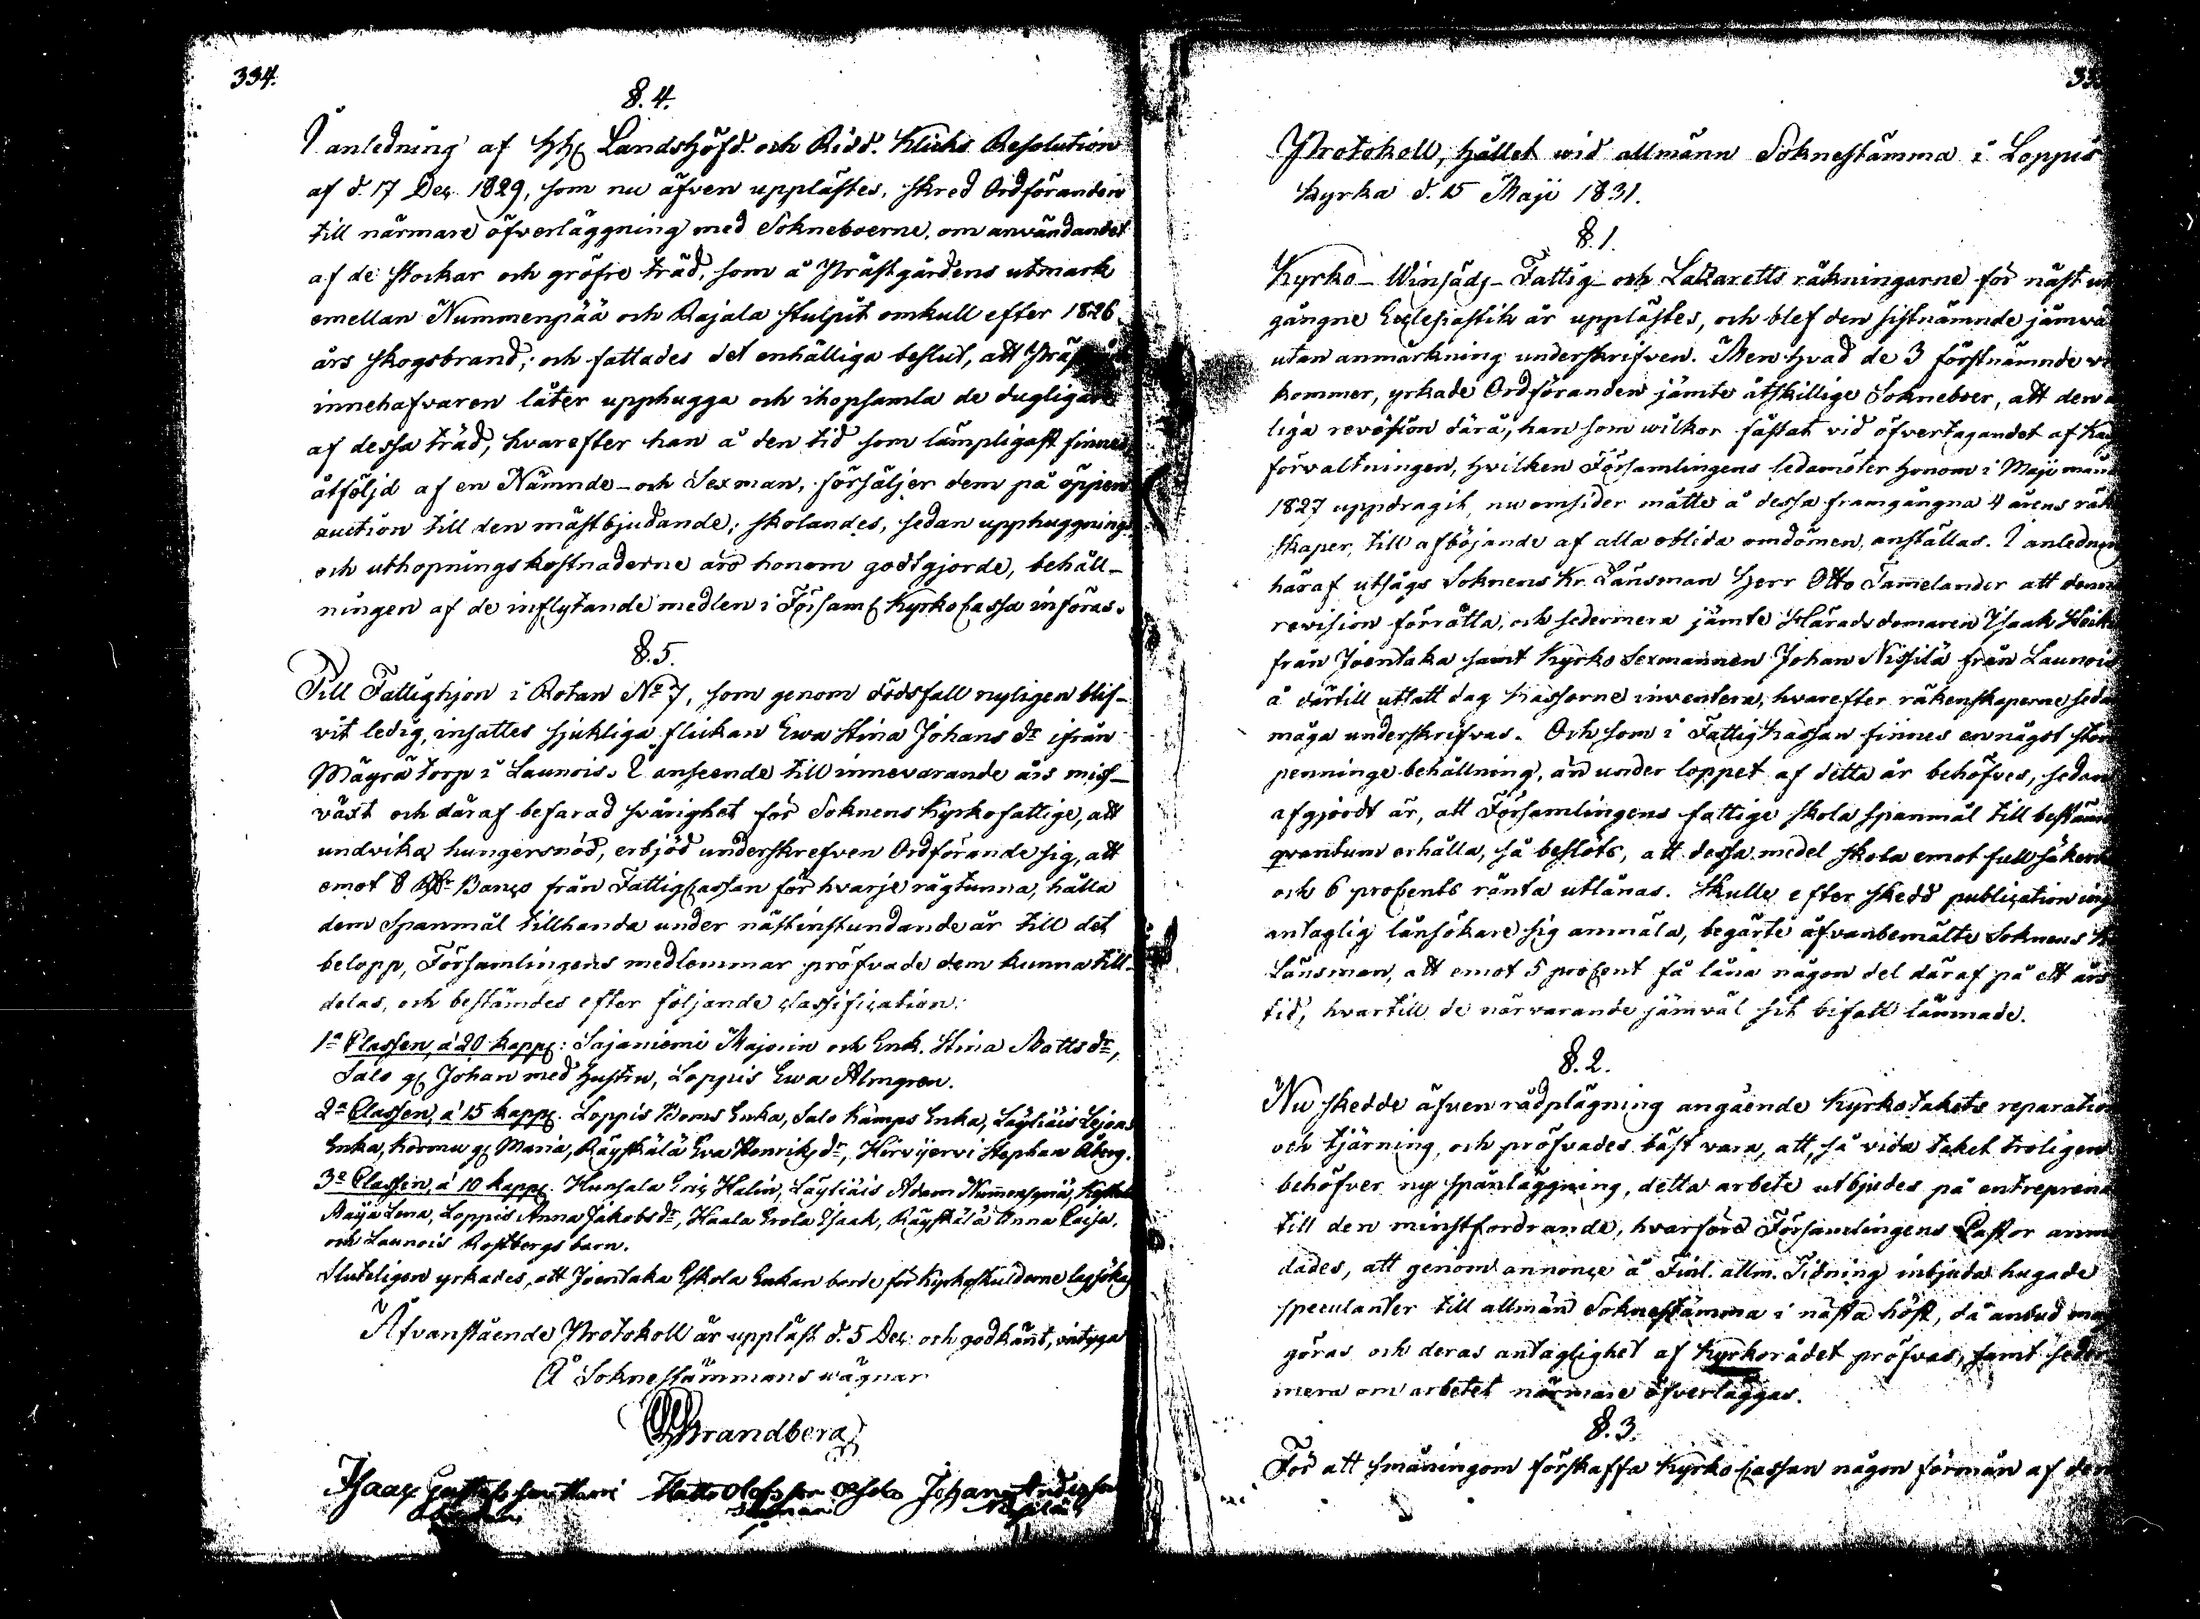 334.
§. 4.
I anledning af HH Landshöfd. och Ridd. Klicks Resolution
af d. 17 Dec. 1829, som nu äfven upplästes, skred Ordföranden
till närmare öfverläggning med Sokneboerne, om användandet
af de stockar och gröfre träd, som å Prästgårdens utmark
emellan Nummenpää och Rajala stulpit omkull efter 1826
års skogsbrand; och fattades det enhälliga beslut, att
innehafvaren låter upphugga och ihopsamla de dugligare
af dessa träd, hvarefter han å den tid som lämpligast finnes,
åtföljd af en Nämnde- och Sexman, försäljer dem på öppen
auction till den mästbjudande; skolandes, sedan upphuggnings
och uthopningskostnaderne äro honom godtgjorde, behåll-
ningen af de inflytande medlen i Församl Kyrko Cassa införas.
§. 5.
Till Fattighjon i Rotan No 7, som genom dödsfall nyligen blif-
vit ledig, insattes sjukliga flickan Ewa Stina Johans dr ifrån
Mäyrä torp i Launois. I anseende till innevarande års miss-
växt och däraf befarad svårighet för Soknens Kyrkofattige, att
undvika hungersnöd, erbjöd underskrefven Ordförande sig, att
emot 8 Rdr Banco från Fattig Cassan för hvarje rågtunna, hålla
dem Spanmål tillhanda under nästinstundande år till det
belopp, Församlingens medlemmar pröfvade dem kunna till-
delas, och bestämdes efter följande classification:
1a Classen, á 20 kapp: Sajaniemi Majorin och Enk. Stina Mattsdr,
Salo g Johan med Hustru, Loppis Ewa Almgren.
2a Classen, á 15 kapp. Loppis Enka, Salo Kämps Enka, Läyliäis
Enka, Kormu g Maria, Räyskälä Eva Henriksdr, Hirvijervi Stephan Åberg.
3e Classen, á 10 kapp. Hunsala Eric Halin, Läyliäis Adam Nummenpää,
Maija Lena, Loppis Anna Jakobsdr, Haala Erola Isaak, Räyskälä Anna Caisa,
och Launois Rostbergs barn.
Sluteligen yrkades, att Joentaka Eskola Enkan borde för Kyrkoskulderne lagsökas
Åfvanstående Protokoll är uppläst d. 5 Dec. och godkänt, intyga
Å Soknestämmans vägnar
Strandberg
Isaac Gustafsson Matts Olofsson Johan Andersson
Protokoll, hållet wid allmänn Soknestämma i Loppis
Kyrka d. 15 Maji 1831.
§. 1.
Kyrko- Winsäds- Fattig- och Latzaretts räkningarne för näst ut
gångne Ecclesiastik år upplästes, och blef den sistnämnde jämwä
utan anmärkning underskrifven. Men hvad de 3 förstnämnde
kommer, yrkade Ordföranden jämte åtskillige Sokneboer, att den
liga revision därå, han som wilkor fästat vid öfvertagandet af
förvaltningen, hvilken Församlingens ledamöter honom i Maji
1827 uppdragit, nu omsider måtte å dessa framgångna 4 årens räk
skaper, till afböjande af alla oblida omdömen, anställas. I anledning
häraf utsågs Soknens Kr. Länsman Herr Otto Tammelander att denna
revision förrätta, och sedermera jämte Häradsdomaren Isaak
från Joentaka samt Kyrko Sexmannen Johan Nissilä från Launois
å därtill utsatt dag Kassorne inventera, hvarefter räkenskaperne sedan
måga underskrifvas. Och som i Fattig Kassan finnes en något större
penninge behållning, än under loppet af detta år behöfves, sedan
afgjordt är, att Församlingens fattige skola spanmål till bestämdt
qvantum erhålla, så beslöts, att dessa medel skola emot full säkerhet
och 6 proCents ränta utlånas. Skulle efter skedd publication
antaglig lånsökare sig anmäla, begärte åfvanbemälte Soknens
Länsman, att emot 5 proCent få låna någon del däraf på ett års
tid, hvartill de närvarande jämväl sit bifall lämnade.
§. 2.
Nu skedde äfven rådplägning angående Kyrkotakets reparation
och tjärning, och pröfvades bäst vara, att, så vida taket troligen
behöfver ny spånläggning, detta arbete utbjudes på entreprenad
till den minstfordrande, hvarföre Församlingens Pastor anmo
dades, att genom annonce å Finl. allm. Tidning inbjuda hugade
speculanter till allmän Soknestämma i nästa höst, då anbud
göras och deras antaglighet af Kyrkorådet pröfvas, samt seder
mera om arbetet närmare öfverläggas.
§. 3.
För att småningom förskaffa Kyrko Cassan någon förmån af den